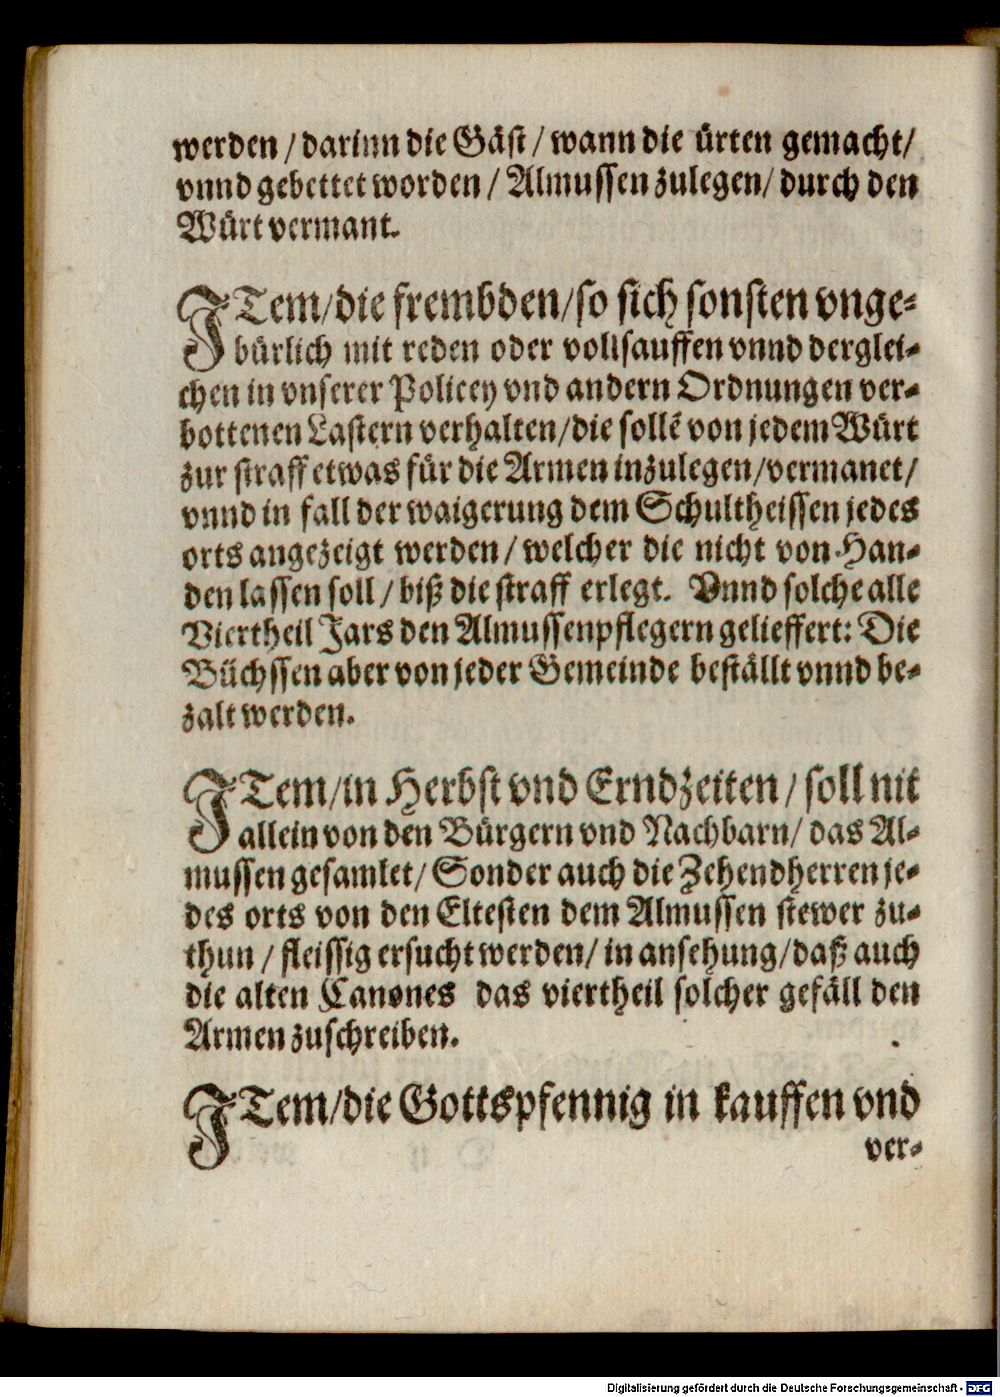 werden / darinn die Gäst / wann die ürten gemacht /
vnnd gebettet worden / Almussen zulegen / durch den
Würt vermant.
ITem / die frembden / so sich sonsten vnge-
bürlich mit reden oder vollsauffen vnnd derglei-
chen in vnserer Policey vnd andern Ordnungen ver-
bottenen Lastern verhalten / die sollẽ von jedem Würt
zur straff etwas für die Armen inzulegen / vermanet /
vnnd in fall der waigerung dem Schultheissen jedes
orts angezeigt werden / welcher die nicht von Han-
den lassen soll / biß die straff erlegt. Vnnd solche alle
Viertheil Jars den Almussenpflegern gelieffert: Die
Büchssen aber von jeder Gemeinde beställt vnnd be-
zalt werden.
ITem / in Herbst vnd Erndzeiten / soll nit
allein von den Bürgern vnd Nachbarn / das Al-
mussen gesamlet / Sonder auch die Zehendherren je-
des orts von den Eltesten dem Almussen stewer zu-
thun / fleissig ersucht werden / in ansehung / daß auch
die alten Canones das viertheil solcher gefäll den
Armen zuschreiben.
ITem / die Gottspfennig in kauffen vnd
ver-
Digitalisierung gefördert durch die Deutsche Forschungsgemeinschaft - DFG